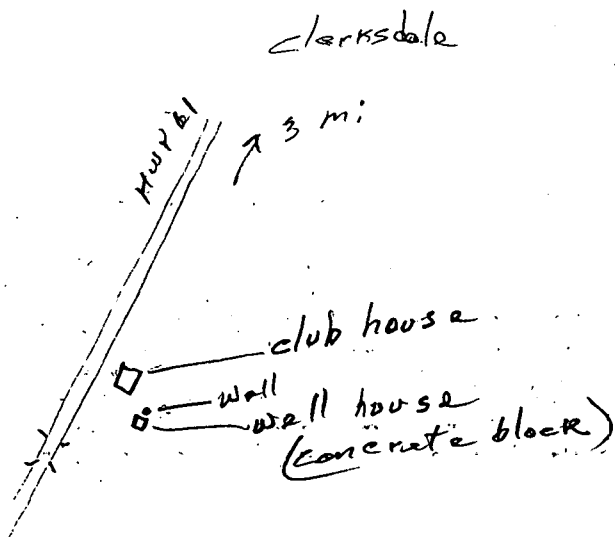 Clarksdale
3 mi
HWY 61
club house
Well
well house
(concrete block)